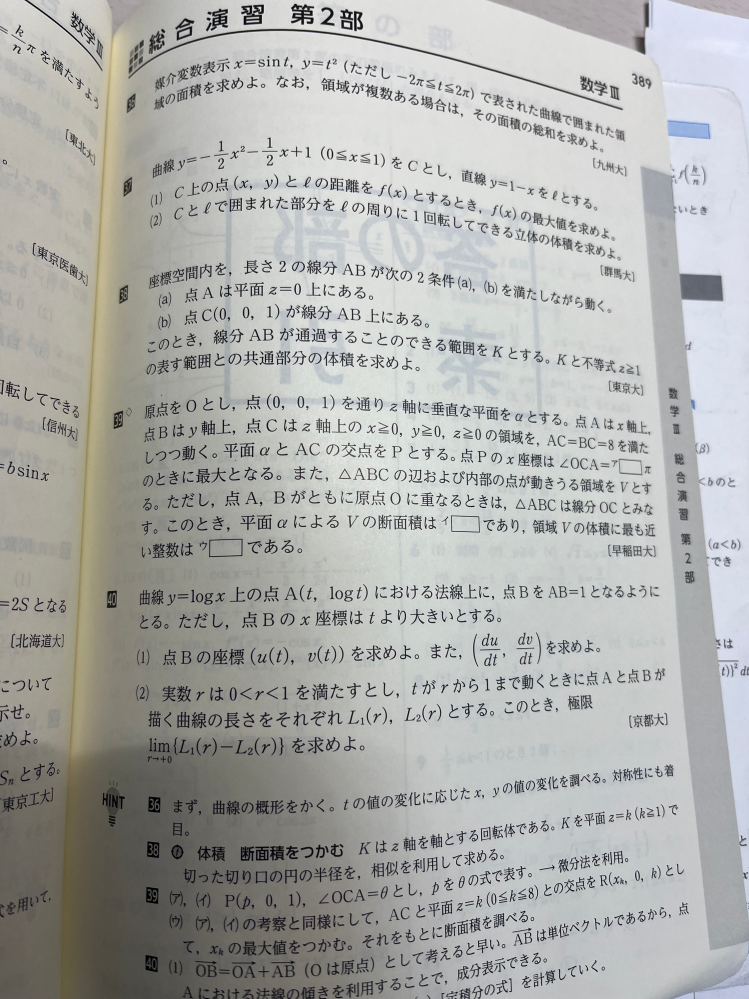 数学Ⅲ
k/n π を満たすよう
[東北大]
[東京医歯大]
回転してできる
[信州大]
=b sin x
=2S となる
[北海道大]
について
示せ。
求めよ。
Sₙ とする。
東京工大]
式を用いて,
総合演習 第2部
数学Ⅲ
389
媒介変数表示 x=sin t, y=t² (ただし −2π≦t≦2π) で表された曲線で囲まれた領
域の面積を求めよ。なお, 領域が複数ある場合は, その面積の総和を求めよ。
[九州大]
37 曲線 y=−1/2 x²−1/2 x+1 (0≦x≦1) を C とし, 直線 y=1−x を ℓ とする。
(1) C 上の点 (x, y) と ℓ の距離を f(x) とするとき, f(x) の最大値を求めよ。
(2) C と ℓ で囲まれた部分を ℓ の周りに 1 回転してできる立体の体積を求めよ。
[群馬大]
38 座標空間内を, 長さ 2 の線分 AB が次の 2 条件 (a), (b) を満たしながら動く。
(a) 点 A は平面 z=0 上にある。
(b) 点 C(0, 0, 1) が線分 AB 上にある。
このとき, 線分 AB が通過することのできる範囲を K とする。K と不等式 z≧1
の表す範囲との共通部分の体積を求めよ。
[東京大]
39◇ 原点を O とし, 点 (0, 0, 1) を通り z 軸に垂直な平面を α とする。点 A は x 軸上,
点 B は y 軸上, 点 C は z 軸上の x≧0, y≧0, z≧0 の領域を, AC=BC=8 を満た
しつつ動く。平面 α と AC の交点を P とする。点 P の x 座標は ∠OCA=ア□π
のときに最大となる。また, △ABC の辺および内部の点が動きうる領域を V とす
る。ただし, 点 A, B がともに原点 O に重なるときは, △ABC は線分 OC とみな
す。このとき, 平面 α による V の断面積は イ□ であり, 領域 V の体積に最も近
い整数は ウ□ である。
[早稲田大]
40 曲線 y=log x 上の点 A(t, log t) における法線上に, 点 B を AB=1 となるように
とる。ただし, 点 B の x 座標は t より大きいとする。
(1) 点 B の座標 (u(t), v(t)) を求めよ。また, (du/dt, dv/dt) を求めよ。
(2) 実数 r は 0<r<1 を満たすとし, t が r から 1 まで動くときに点 A と点 B が
描く曲線の長さをそれぞれ L₁(r), L₂(r) とする。このとき, 極限
lim r→+0 {L₁(r)−L₂(r)} を求めよ。
[京都大]
HINT
36 まず, 曲線の概形をかく。t の値の変化に応じた x, y の値の変化を調べる。対称性にも着
目。
38 体積 断面積をつかむ K は z 軸を軸とする回転体である。K を平面 z=k (k≧1) で
切った切り口の円の半径を, 相似を利用して求める。
39 (ア), (イ) P(p, 0, 1), ∠OCA=θ とし, p を θ の式で表す。→ 微分法を利用。
(ウ) (ア), (イ) の考察と同様にして, AC と平面 z=k (0≦k≦8) との交点を R(xₖ, 0, k) とし
て, xₖ の最大値をつかむ。それをもとに断面積を調べる。
40 (1) OB=OA+AB (O は原点) として考えると早い。AB は単位ベクトルであるから, 点
A における法線の傾きを利用することで, 成分表示できる。
[定積分の式] を計算していく。
数学Ⅲ 総合演習 第2部
f(k/n)
いとき
β)
<b のと
(a<b)
でき
さは
t))² dt